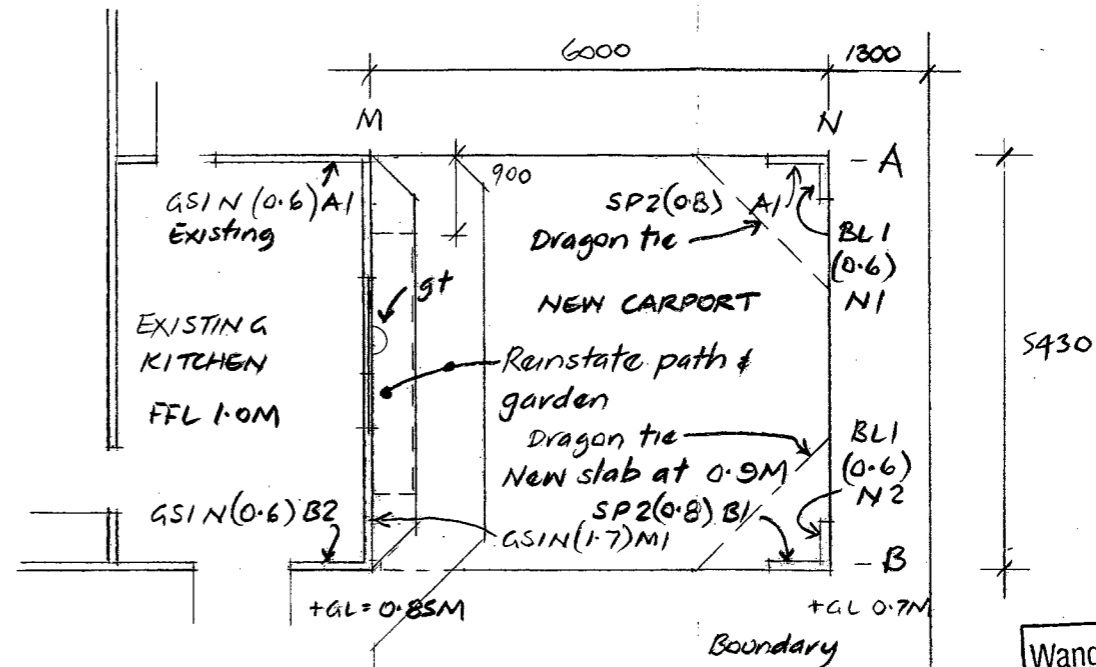 6000
1300
M
N
A
900
GSIN (0.6) A1
Existing
SP2(0.8) A1
Dragon tie
BL1
(0.6)
N1
gt
NEW CARPORT
EXISTING
KITCHEN
FFL 1.0M
Reinstate path &
garden
5430
Dragon tie
New slab at 0.9M
BL1
(0.6)
N2
GSIN(0.6) B2
SP2(0.8) B1
GSIN(1.7) M1
B
+GL = 0.85M
+GL 0.7M
Boundary
Wand